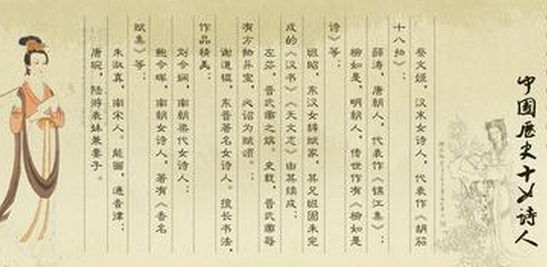 中國歷史十女诗人
蔡文姬，汉末女诗人，代表作《胡笳
十八拍》；
薛涛，唐朝人，代表作《锦江集》；
柳如是，明朝人，传世作有《柳如是
诗》等；
班昭，东汉女辞赋家，其兄班固未完
成的《汉书》《天文志》由其续成；
左芬，晋武帝之嫔。史载，晋武帝每
有方物异宝，必诏为赋颂。；
谢道韫，东晋著名女诗人。擅长书法，
作品精美；
刘令娴，南朝梁代女诗人；
鲍令晖，南朝女诗人，著有《香名
赋集》等；
朱淑真，南宋人。能画，通音律；
唐琬，陆游表妹兼妻子。